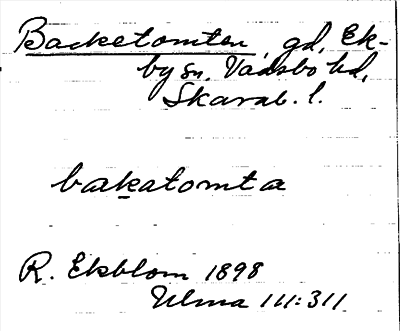 Backetomten, gd, Ek-
by sn, Vadsbo hd,
Skarab. l.
bakatomta
R. Ekblom 1898
Ulma 111:311